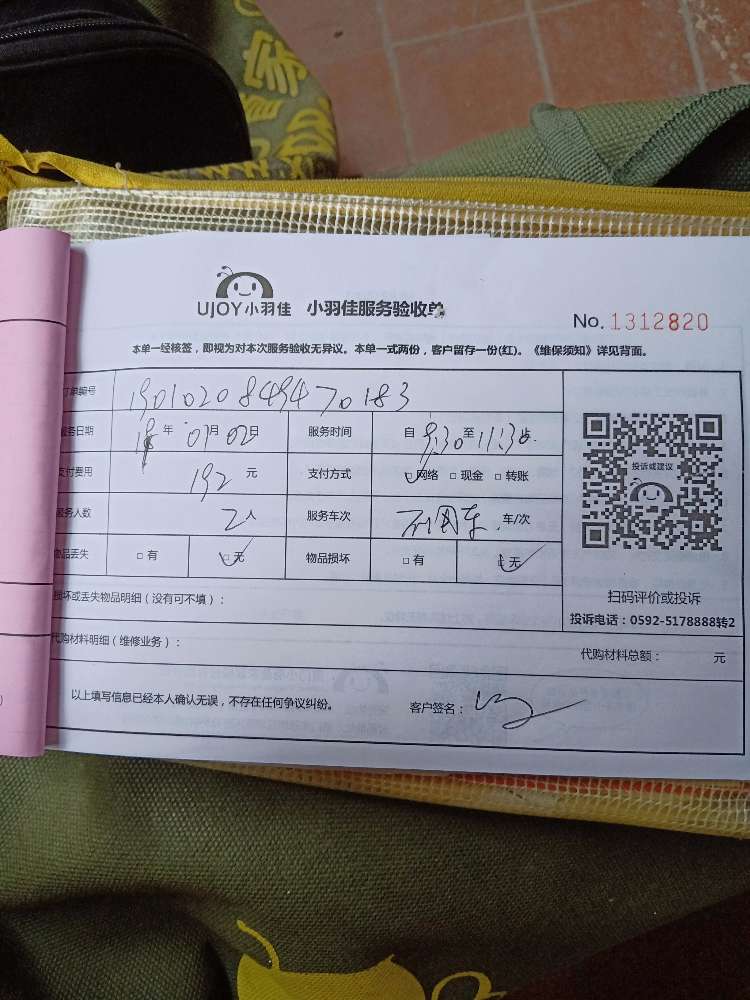 家
UJOY小羽佳 小羽佳服务验收单
No. 1312820
本单一经核签，即视为对本次服务验收无异议。本单一式两份，客户留存一份(红)。《维保须知》详见背面。
订单编号 1901020849470183
服务日期 19年 01月 02日 服务时间 自 9:30 至 11:30 止
支付费用 192 元 支付方式 □网络 □现金 □转账
服务人数 2人 服务车次 车/次
物品丢失 □有 □无 物品损坏 □有 □无
投诉或建议
扫码评价或投诉
投诉电话：0592-5178888转2
损坏或丢失物品明细（没有可不填）：
代购材料明细（维修业务）： 代购材料总额： 元
以上填写信息已经本人确认无误，不存在任何争议纠纷。 客户签名：